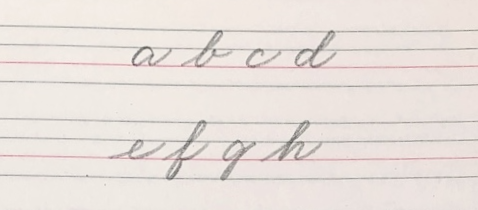 a b c d
e f g h